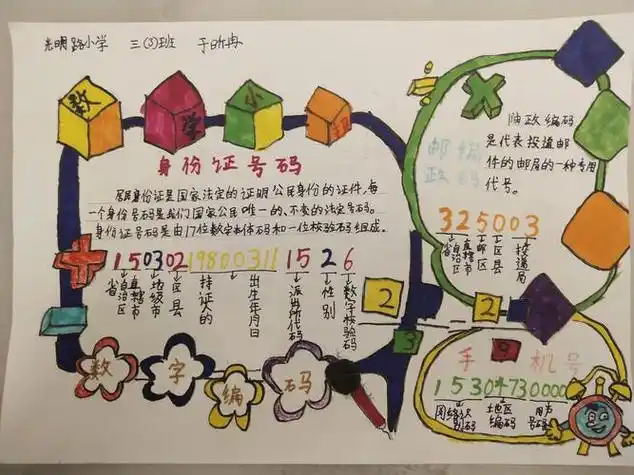 光明路小学 三(3)班 于昕冉
数学小报
身份证号码
居民身份证是国家法定的证明公民身份的证件,每
一个身份号码是我们国家公民唯一的、不变的法定号码。
身份证号码是由17位数字本体码和一位校验码组成。
150302198003111526
省 自治区 直辖市
地级市
区 县
持证人的
出生年月日
派出所代码
性别
数字校验码
数字编码
邮政编码
邮政编码
是代表投递邮
件的邮局的一种专用
代号。
325003
省 自治区 直辖市
邮区
区县
投递局
2
2
3
9
手机号
15304730000
网络识别码
地区编码
用户号码